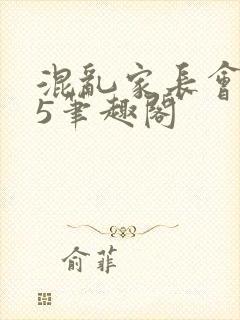 混亂家長會
5筆趣閣
俞菲